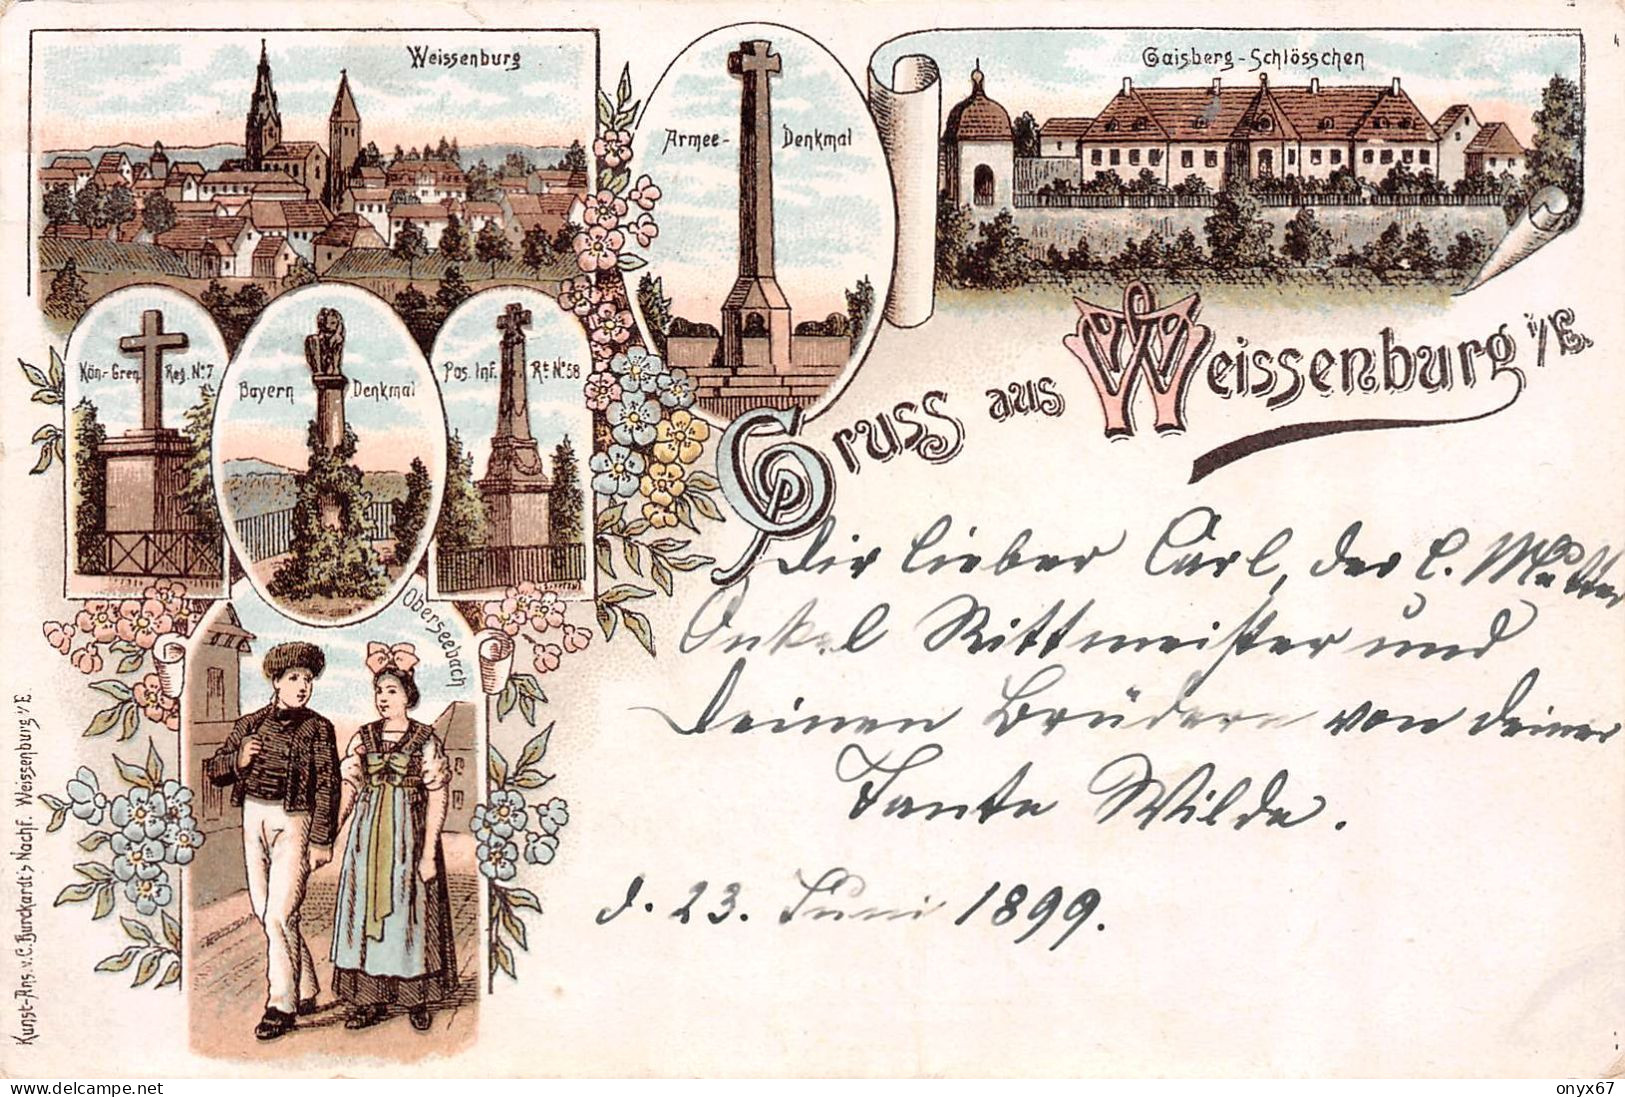 Weissenburg
Armee- Denkmal
Gaisberg-Schlösschen
Kön-Gren. Reg. No 7
Bayern Denkmal
Pos. Inf. Rt. No 58
Gruss aus Weissenburg i/E.
Oberseebach
Dir lieber Carl, der l. Mutter
Onkel Rittmeister und
Deinen Brüdern von Deiner
Tante Wilde.
d. 23. Juni 1899.
Kunst-Ans. v. C. Burckardt's Nachf. Weissenburg i/E.
delcampe.net
onyx67